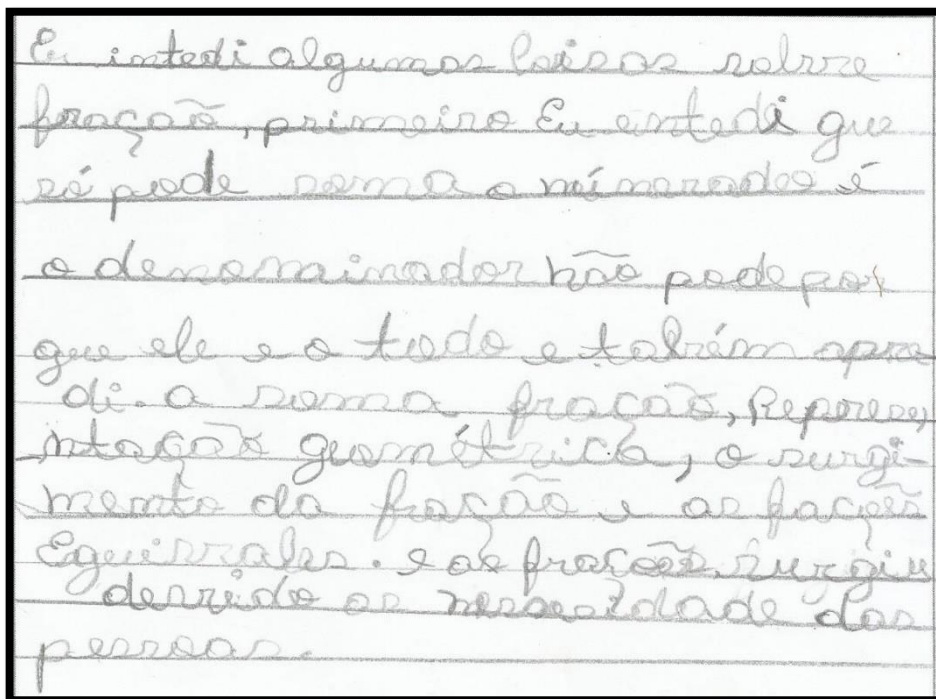 Eu intedi algumas Coisas sobre
fração, primeiro Eu entedi que
só pode soma o númerador é
o denomainador não pode por
que ele e o todo e tabém apre
di. a soma fração, Represe,
ntação geométrica, o surgi-
mento da fração e as fações
Equivales. e as frações surgiu
devido as nessesidade das
pessoas.